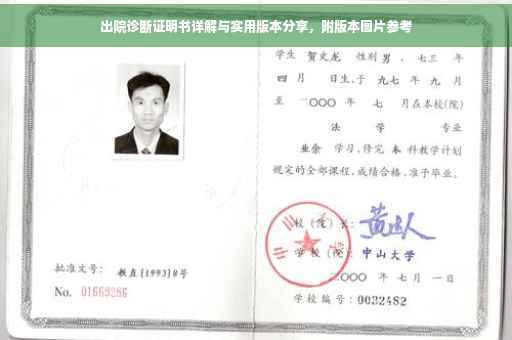 出院诊断证明书详解与实用版本分享，附版本图片参考
学生 贺文龙 性别 男 ，七三 年
四 月 日生，于 九七 年 九 月
至 二〇〇〇 年 七 月在本校(院)
法 学 专业
业余 学习，修完 本 科教学计划
规定的全部课程，成绩合格，准予毕业。
校（院）长：
学 校（院）：中山大学
二〇〇〇 年 七 月 一 日
学校编号：0032482
批准文号： 教直[1993]8号
No. 01669286